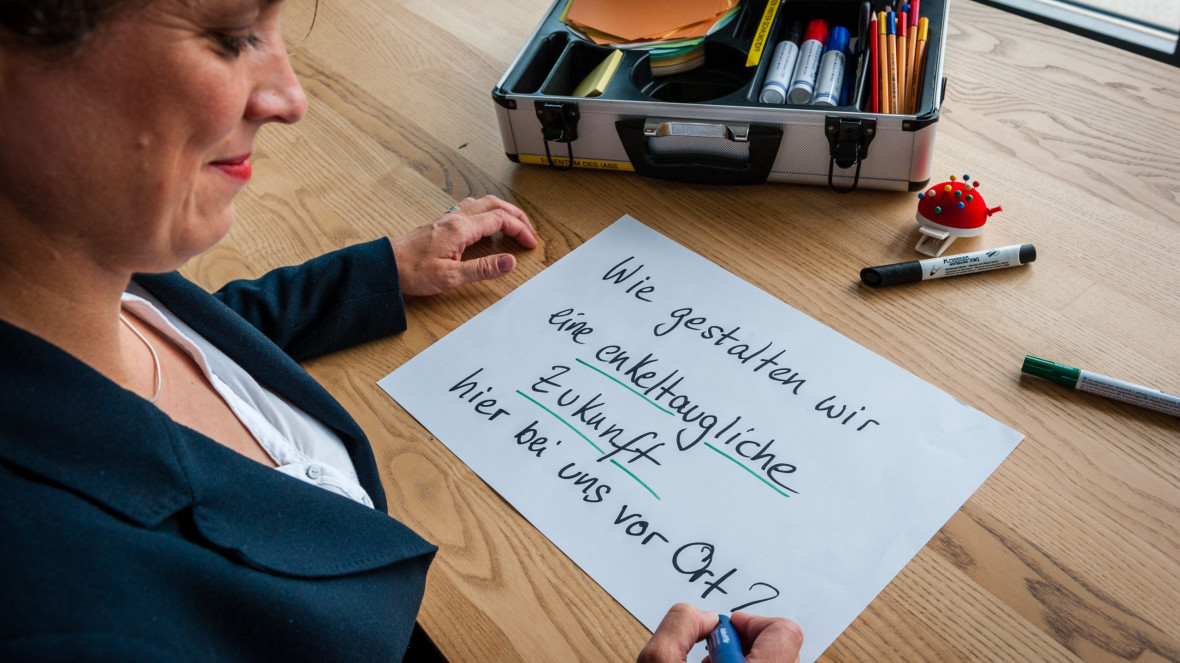 EIGENTUM DES IASS
Wie gestalten wir
eine enkeltaugliche
Zukunft
hier bei uns vor Ort?